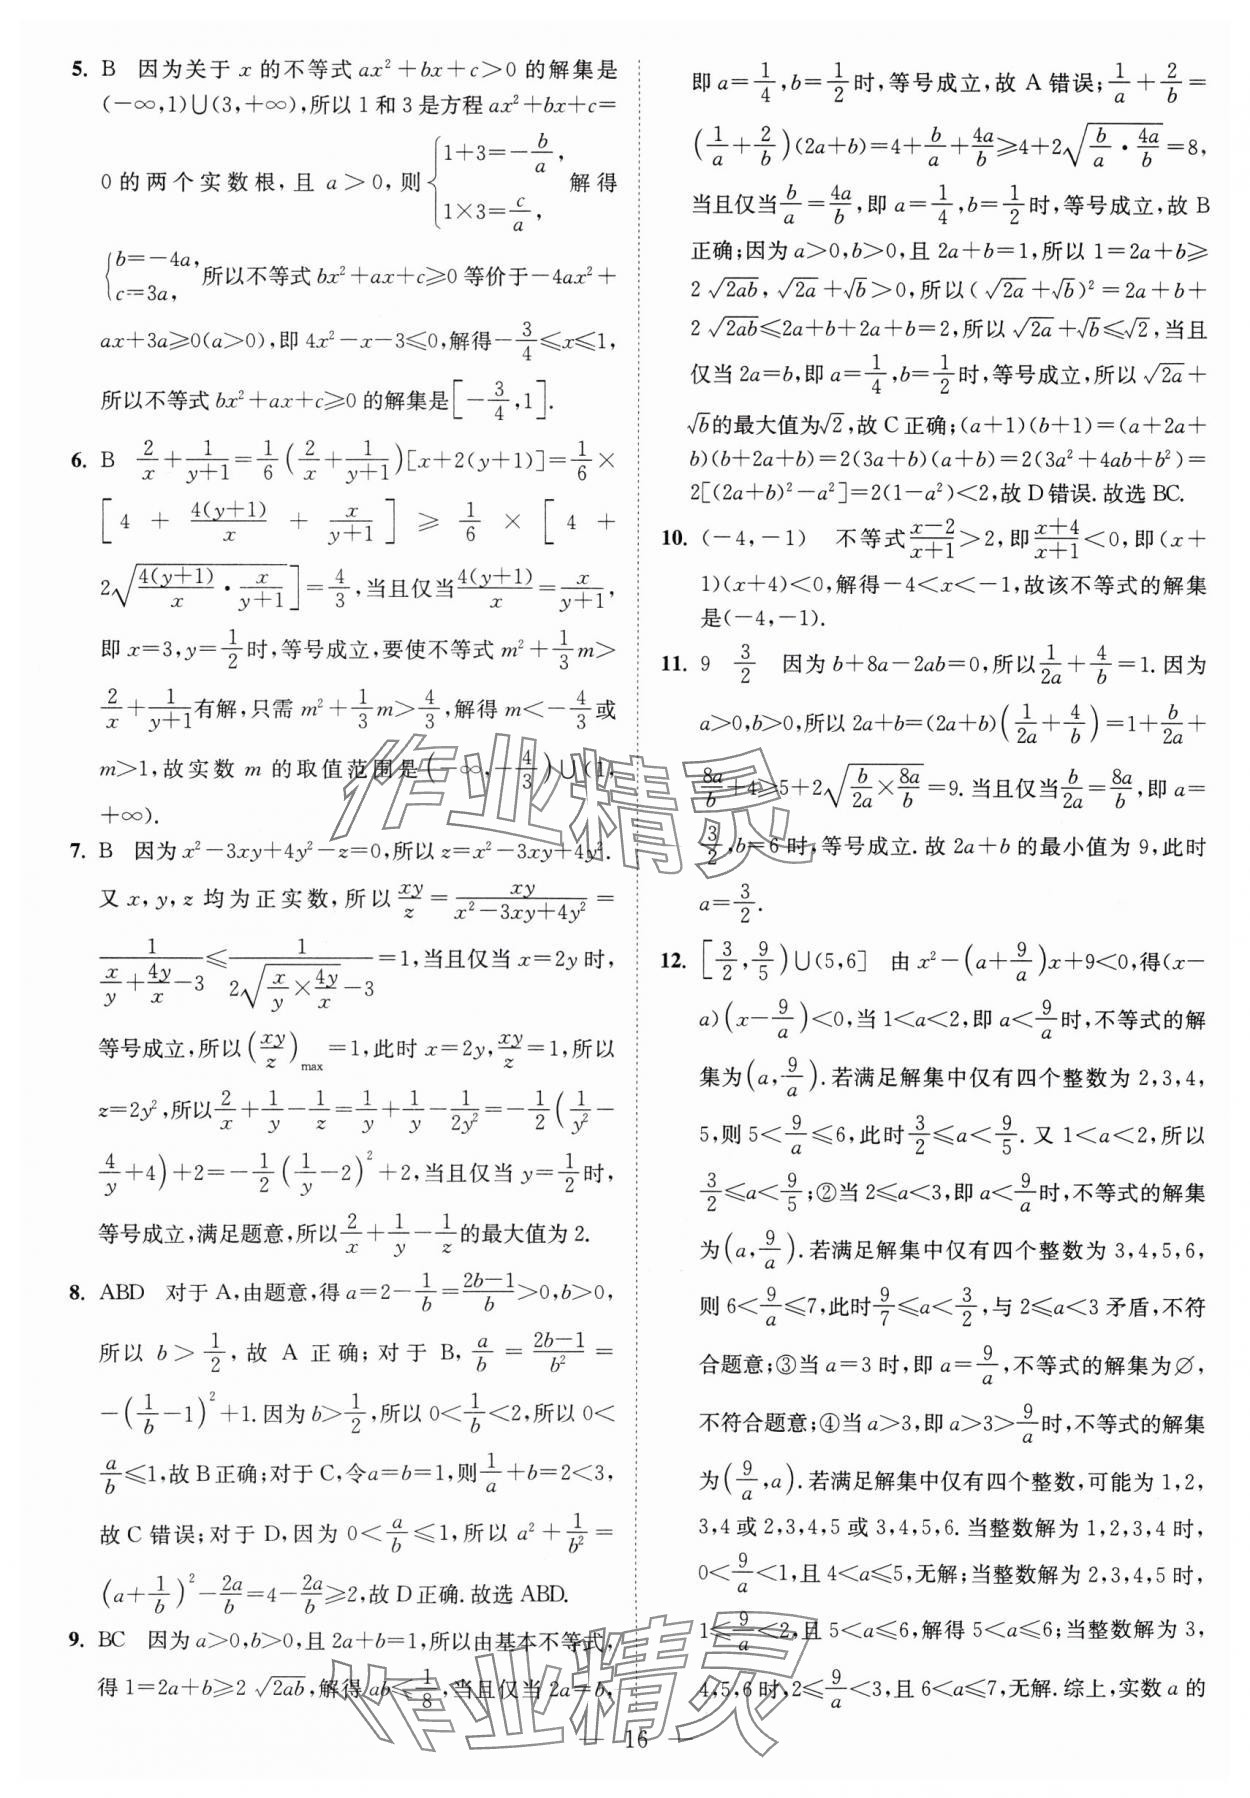 5. B 因为关于 x 的不等式 ax²+bx+c>0 的解集是
(-∞,1)∪(3,+∞),所以 1 和 3 是方程 ax²+bx+c=
0 的两个实数根,且 a>0,则{1+3=-b/a, 1×3=c/a, 解得
{b=-4a, c=3a, 所以不等式 bx²+ax+c⩾0 等价于-4ax²+
ax+3a⩾0(a>0),即 4x²-x-3⩽0,解得-3/4⩽x⩽1,
所以不等式 bx²+ax+c⩾0 的解集是[-3/4,1].
6. B 2/x+1/(y+1)=1/6(2/x+1/(y+1))[x+2(y+1)]=1/6×
[4+4(y+1)/x+x/(y+1)]⩾1/6×[4+
2√(4(y+1)/x·x/(y+1))]=4/3,当且仅当4(y+1)/x=x/(y+1),
即 x=3,y=1/2时,等号成立,要使不等式 m²+1/3m>
2/x+1/(y+1)有解,只需 m²+1/3m>4/3,解得 m<-4/3或
m>1,故实数 m 的取值范围是(-∞,-4/3)∪(1,
+∞).
7. B 因为 x²-3xy+4y²-z=0,所以 z=x²-3xy+4y².
又 x,y,z 均为正实数,所以xy/z=xy/(x²-3xy+4y²)=
1/(x/y+4y/x-3)⩽1/(2√(x/y×4y/x)-3)=1,当且仅当 x=2y 时,
等号成立,所以(xy/z)max=1,此时 x=2y,xy/z=1,所以
z=2y²,所以2/x+1/y-1/z=1/y+1/y-1/2y²=-1/2(1/y²-
4/y+4)+2=-1/2(1/y-2)²+2,当且仅当 y=1/2时,
等号成立,满足题意,所以2/x+1/y-1/z的最大值为 2.
8. ABD 对于 A,由题意,得 a=2-1/b=(2b-1)/b>0,b>0,
所以 b>1/2,故 A 正确;对于 B,a/b=(2b-1)/b²=
-(1/b-1)²+1.因为 b>1/2,所以 0<1/b<2,所以 0<
a/b⩽1,故 B 正确;对于 C,令 a=b=1,则1/a+b=2<3,
故 C 错误;对于 D,因为 0<a/b⩽1,所以 a²+1/b²=
(a+1/b)²-2a/b=4-2a/b⩾2,故 D 正确.故选 ABD.
9. BC 因为 a>0,b>0,且 2a+b=1,所以由基本不等式,
得 1=2a+b⩾2√2ab,解得 ab⩽1/8,当且仅当 2a=b,
即 a=1/4,b=1/2时,等号成立,故 A 错误;1/a+2/b=
(1/a+2/b)(2a+b)=4+b/a+4a/b⩾4+2√(b/a·4a/b)=8,
当且仅当b/a=4a/b,即 a=1/4,b=1/2时,等号成立,故 B
正确;因为 a>0,b>0,且 2a+b=1,所以 1=2a+b⩾
2√2ab,√2a+√b>0,所以(√2a+√b)²=2a+b+
2√2ab⩽2a+b+2a+b=2,所以√2a+√b⩽√2,当且
仅当 2a=b,即 a=1/4,b=1/2时,等号成立,所以√2a+
√b的最大值为√2,故 C 正确;(a+1)(b+1)=(a+2a+
b)(b+2a+b)=2(3a+b)(a+b)=2(3a²+4ab+b²)=
2[(2a+b)²-a²]=2(1-a²)<2,故 D 错误.故选 BC.
10. (-4,-1) 不等式(x-2)/(x+1)>2,即(x+4)/(x+1)<0,即(x+
1)(x+4)<0,解得-4<x<-1,故该不等式的解集
是(-4,-1).
11. 9 3/2 因为 b+8a-2ab=0,所以1/2a+4/b=1.因为
a>0,b>0,所以 2a+b=(2a+b)(1/2a+4/b)=1+b/2a+
8a/b+4⩾5+2√(b/2a×8a/b)=9.当且仅当b/2a=8a/b,即 a=
3/2,b=6 时,等号成立.故 2a+b 的最小值为 9,此时
a=3/2.
12. [3/2,9/5)∪(5,6] 由 x²-(a+9/a)x+9<0,得(x-
a)(x-9/a)<0,当 1<a<2,即 a<9/a时,不等式的解
集为(a,9/a).若满足解集中仅有四个整数为 2,3,4,
5,则 5<9/a⩽6,此时3/2⩽a<9/5.又 1<a<2,所以
3/2⩽a<9/5;②当 2⩽a<3,即 a<9/a时,不等式的解集
为(a,9/a).若满足解集中仅有四个整数为 3,4,5,6,
则 6<9/a⩽7,此时9/7⩽a<3/2,与 2⩽a<3 矛盾,不符
合题意;③当 a=3 时,即 a=9/a,不等式的解集为∅,
不符合题意;④当 a>3,即 a>3>9/a时,不等式的解集
为(9/a,a).若满足解集中仅有四个整数,可能为 1,2,
3,4 或 2,3,4,5 或 3,4,5,6.当整数解为 1,2,3,4 时,
0<9/a<1,且 4<a⩽5,无解;当整数解为 2,3,4,5 时,
1⩽9/a<2,且 5<a⩽6,解得 5<a⩽6;当整数解为 3,
4,5,6 时,2⩽9/a<3,且 6<a⩽7,无解.综上,实数 a 的
— 16 —
作业精灵
作业精灵